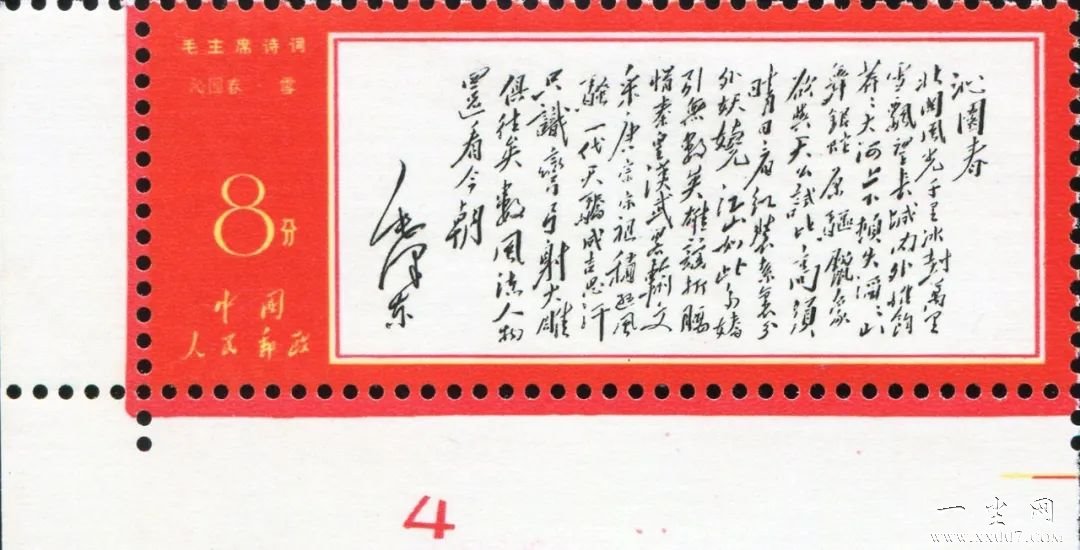 毛主席诗词
沁园春·雪
8分
中国
人民邮政
沁園春
北國風光千里冰封萬里
雪飄望長城内外惟餘
莽〻大河上下頓失滔〻山
舞銀蛇原驅臘象
欲與天公試比高須
晴日看紅裝素裹分
外妖嬈江山如此多嬌
引無數英雄競折腰
惜秦皇漢武略輸文
采唐宗宋祖稍遜風
騷一代天驕成吉思汗
只識彎弓射大雕
俱往矣數風流人物
還看今朝
毛泽东
4
一尘网
www.xxdd7.com